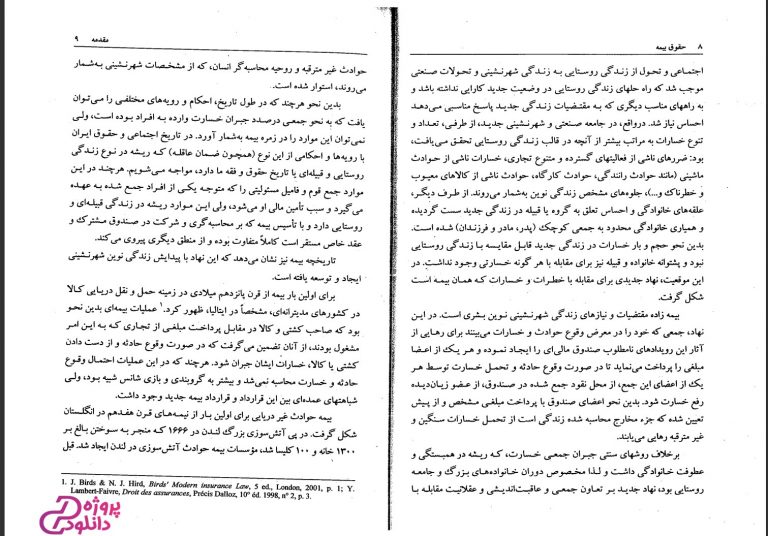 ۸ حقوق بیمه
اجتماعی و تحول از زندگی روستایی به زندگی شهرنشینی و تحولات صنعتی
موجب شد که راه حلهای زندگی روستایی در وضعیت جدید کارایی نداشته باشد و
به راههای مناسب دیگری که به مقتضیات زندگی جدید پاسخ مناسبی می‌دهد
احساس نیاز شد. درواقع، در جامعه صنعتی و شهرنشینی جدید، از طرفی، تعداد و
تنوع خسارات به مراتب بیشتر از آنچه در قالب زندگی روستایی تحقق می‌یافت،
بود: ضررهای ناشی از فعالیتهای گسترده و متنوع تجاری، خسارات ناشی از حوادث
ماشینی (مانند حوادث رانندگی، حوادث کارگاه، حوادث ناشی از کالاهای معیوب
و خطرناک و...)، جلوه‌های مشخص زندگی نوین به‌شمار می‌روند. از طرف دیگر،
علقه‌های خانوادگی و احساس تعلق به گروه یا قبیله در زندگی جدید سست گردیده
و همیاری خانوادگی محدود به جمعی کوچک (پدر، مادر و فرزندان) شده است.
بدین نحو حجم و بار خسارات در زندگی جدید قابل مقایسه با زندگی روستایی
نبود و پشتوانه خانواده و قبیله نیز برای مقابله با هر گونه خسارتی وجود نداشت. در
این موقعیت، نهاد جدیدی برای مقابله با خطرات و خسارات که همان بیمه است
شکل گرفت.
بیمه زاده مقتضیات و نیازهای زندگی شهرنشینی نوین بشری است. در این
نهاد، جمعی که خود را در معرض وقوع حوادث و خسارات می‌بینند برای رهایی از
آثار این رویدادهای نامطلوب صندوق مالی‌ای را ایجاد نموده و هر یک از اعضا
مبلغی را پرداخت می‌نماید تا در صورت وقوع حادثه و تحمل خسارت توسط هر
یک از اعضای این جمع، از محل نقود جمع شده در صندوق، از عضو زیان‌دیده
رفع خسارت شود. بدین نحو اعضای صندوق با پرداخت مبلغی مشخص و از پیش
تعیین شده که جزء مخارج محاسبه شده زندگی است از تحمل خسارات سنگین و
غیر مترقبه رهایی می‌یابند.
برخلاف روشهای سنتی جبران جمعی خسارت، که ریشه در همبستگی و
عطوفت خانوادگی داشت و لذا مخصوص دوران خانواده‌های بزرگ و جامعه
روستایی بود، نهاد جدید بر تعاون جمعی و عاقبت‌اندیشی و عقلانیت مقابله با
مقدمه ۹
حوادث غیر مترقبه و روحیه محاسبه‌گر انسان، که از مشخصات شهرنشینی به‌شمار
می‌روند، استوار شده است.
بدین نحو هرچند که در طول تاریخ، احکام و رویه‌های مختلفی را می‌توان
یافت که به نحو جمعی درصدد جبران خسارت وارده به افراد بوده است، ولی
نمی‌توان این موارد را در زمره بیمه به‌شمار آورد. در تاریخ اجتماعی و حقوق ایران
با رویه‌ها و احکامی از این نوع (همچون ضمان عاقله) که ریشه در نوع زندگی
روستایی و قبیله‌ای یا تاریخ حقوق و فقه ما دارد، مواجه می‌شویم. هرچند در این
موارد جمع قوم و فامیل مسئولیتی را که متوجه یکی از افراد جمع شده به عهده
می‌گیرد و سبب تأمین مالی او می‌شود، ولی این موارد ریشه در زندگی قبیله‌ای و
روستایی دارد و با تأسیس بیمه که بر محاسبه‌گری و شرکت در صندوق مشترک و
عقد خاص مستقر است کاملاً متفاوت بوده و از منطق دیگری پیروی می‌کند.
تاریخچه بیمه نیز نشان می‌دهد که این نهاد با پیدایش زندگی نوین شهرنشینی
ایجاد و توسعه یافته است.
برای اولین بار بیمه از قرن پانزدهم میلادی در زمینه حمل و نقل دریایی کالا
در کشورهای مدیترانه‌ای، مشخصاً در ایتالیا، ظهور کرد.۱ عملیات بیمه‌ای بدین نحو
بود که صاحب کشتی و کالا در مقابل پرداخت مبلغی از تجاری که به این امر
مشغول بودند، از آنان تضمین می‌گرفت که در صورت وقوع حادثه و از دست دادن
کشتی یا کالا، خسارات ایشان جبران شود. هرچند که در این عملیات احتمال وقوع
حادثه و خسارت محاسبه نمی‌شد و بیشتر به گروبندی و بازی شانس شبیه بود، ولی
شباهتهای عمده‌ای بین این قرارداد و قرارداد بیمه جدید وجود داشت.
بیمه حوادث غیر دریایی برای اولین بار از نیمه‌های قرن هفدهم در انگلستان
شکل گرفت. در پی آتش‌سوزی بزرگ لندن در ۱۶۶۶ که منجر به سوختن بالغ بر
۱۳۰۰ خانه و ۱۰۰ کلیسا شد، مؤسسات بیمه حوادث آتش‌سوزی در لندن ایجاد شد. قبل
1. J. Birds & N. J. Hird, Birds' Modern insurance Law, 5 ed., London, 2001, p. 1; Y.
Lambert-Faivre, Droit des assurances, Précis Dalloz, 10º éd. 1998, nº 2, p. 3.
پروژه
دانلود